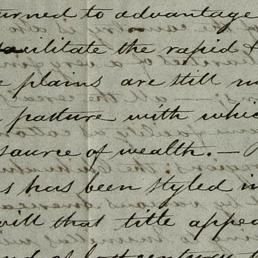 turned to advantage
facilitate the rapid &
plains are still
pasture with whic
source of wealth. —
s has been styled in
will that title appea